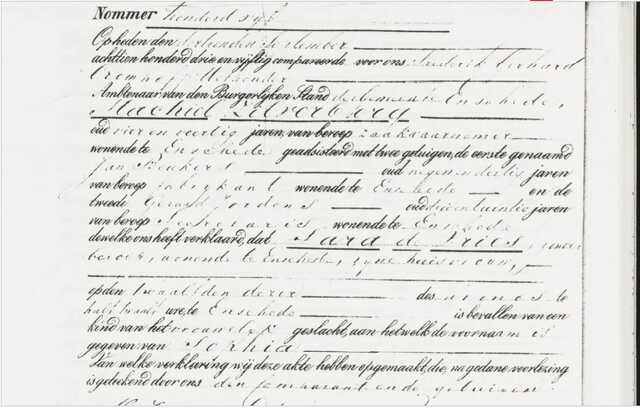 Nommer honderd vyf
Op heden den dertienden September
achttien honderd drie en vijftig compareerde voor ons, Frederik Gerhard
Cromhoff Wethouder
Ambtenaar van den Burgerlijken Stand der Gemeente Enschede,
Machiel Zilverberg
oud vier en veertig jaren, van beroep zaakwaarnemer
wonende te Enschede geadsisteerd met twee getuigen, de eerste genaamd
Jan Beukers oud negen en dertig jaren
van beroep fabrykant wonende te Enschede en de
tweede Gerard Jordans oud drie en twintig jaren
van beroep Secretaris wonende te Enschede
dewelke ons heeft verklaard, dat Sara de Vries, zonder
beroep, wonende te Enschede, zyne huisvrouw,
op den twaalfden dezer des avonds te
half twaalf ure, te Enschede is bevallen van een
kind van het vrouwelyk geslacht, aan hetwelk de voornaam is
gegeven van Sophia
Van welke verklaring wij deze akte hebben opgemaakt, die, na gedane voorlezing
is geteekend door ons den Comparant en de getuigen.